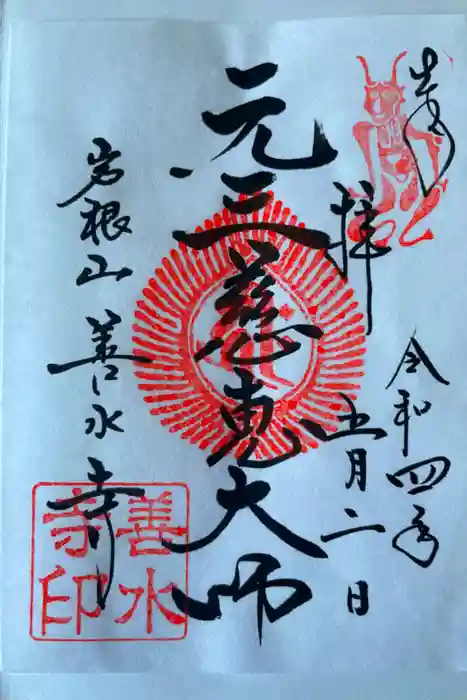 奉拝
令和四年
五月二日
元三慈恵大師
岩根山 善水寺
善水
寺印